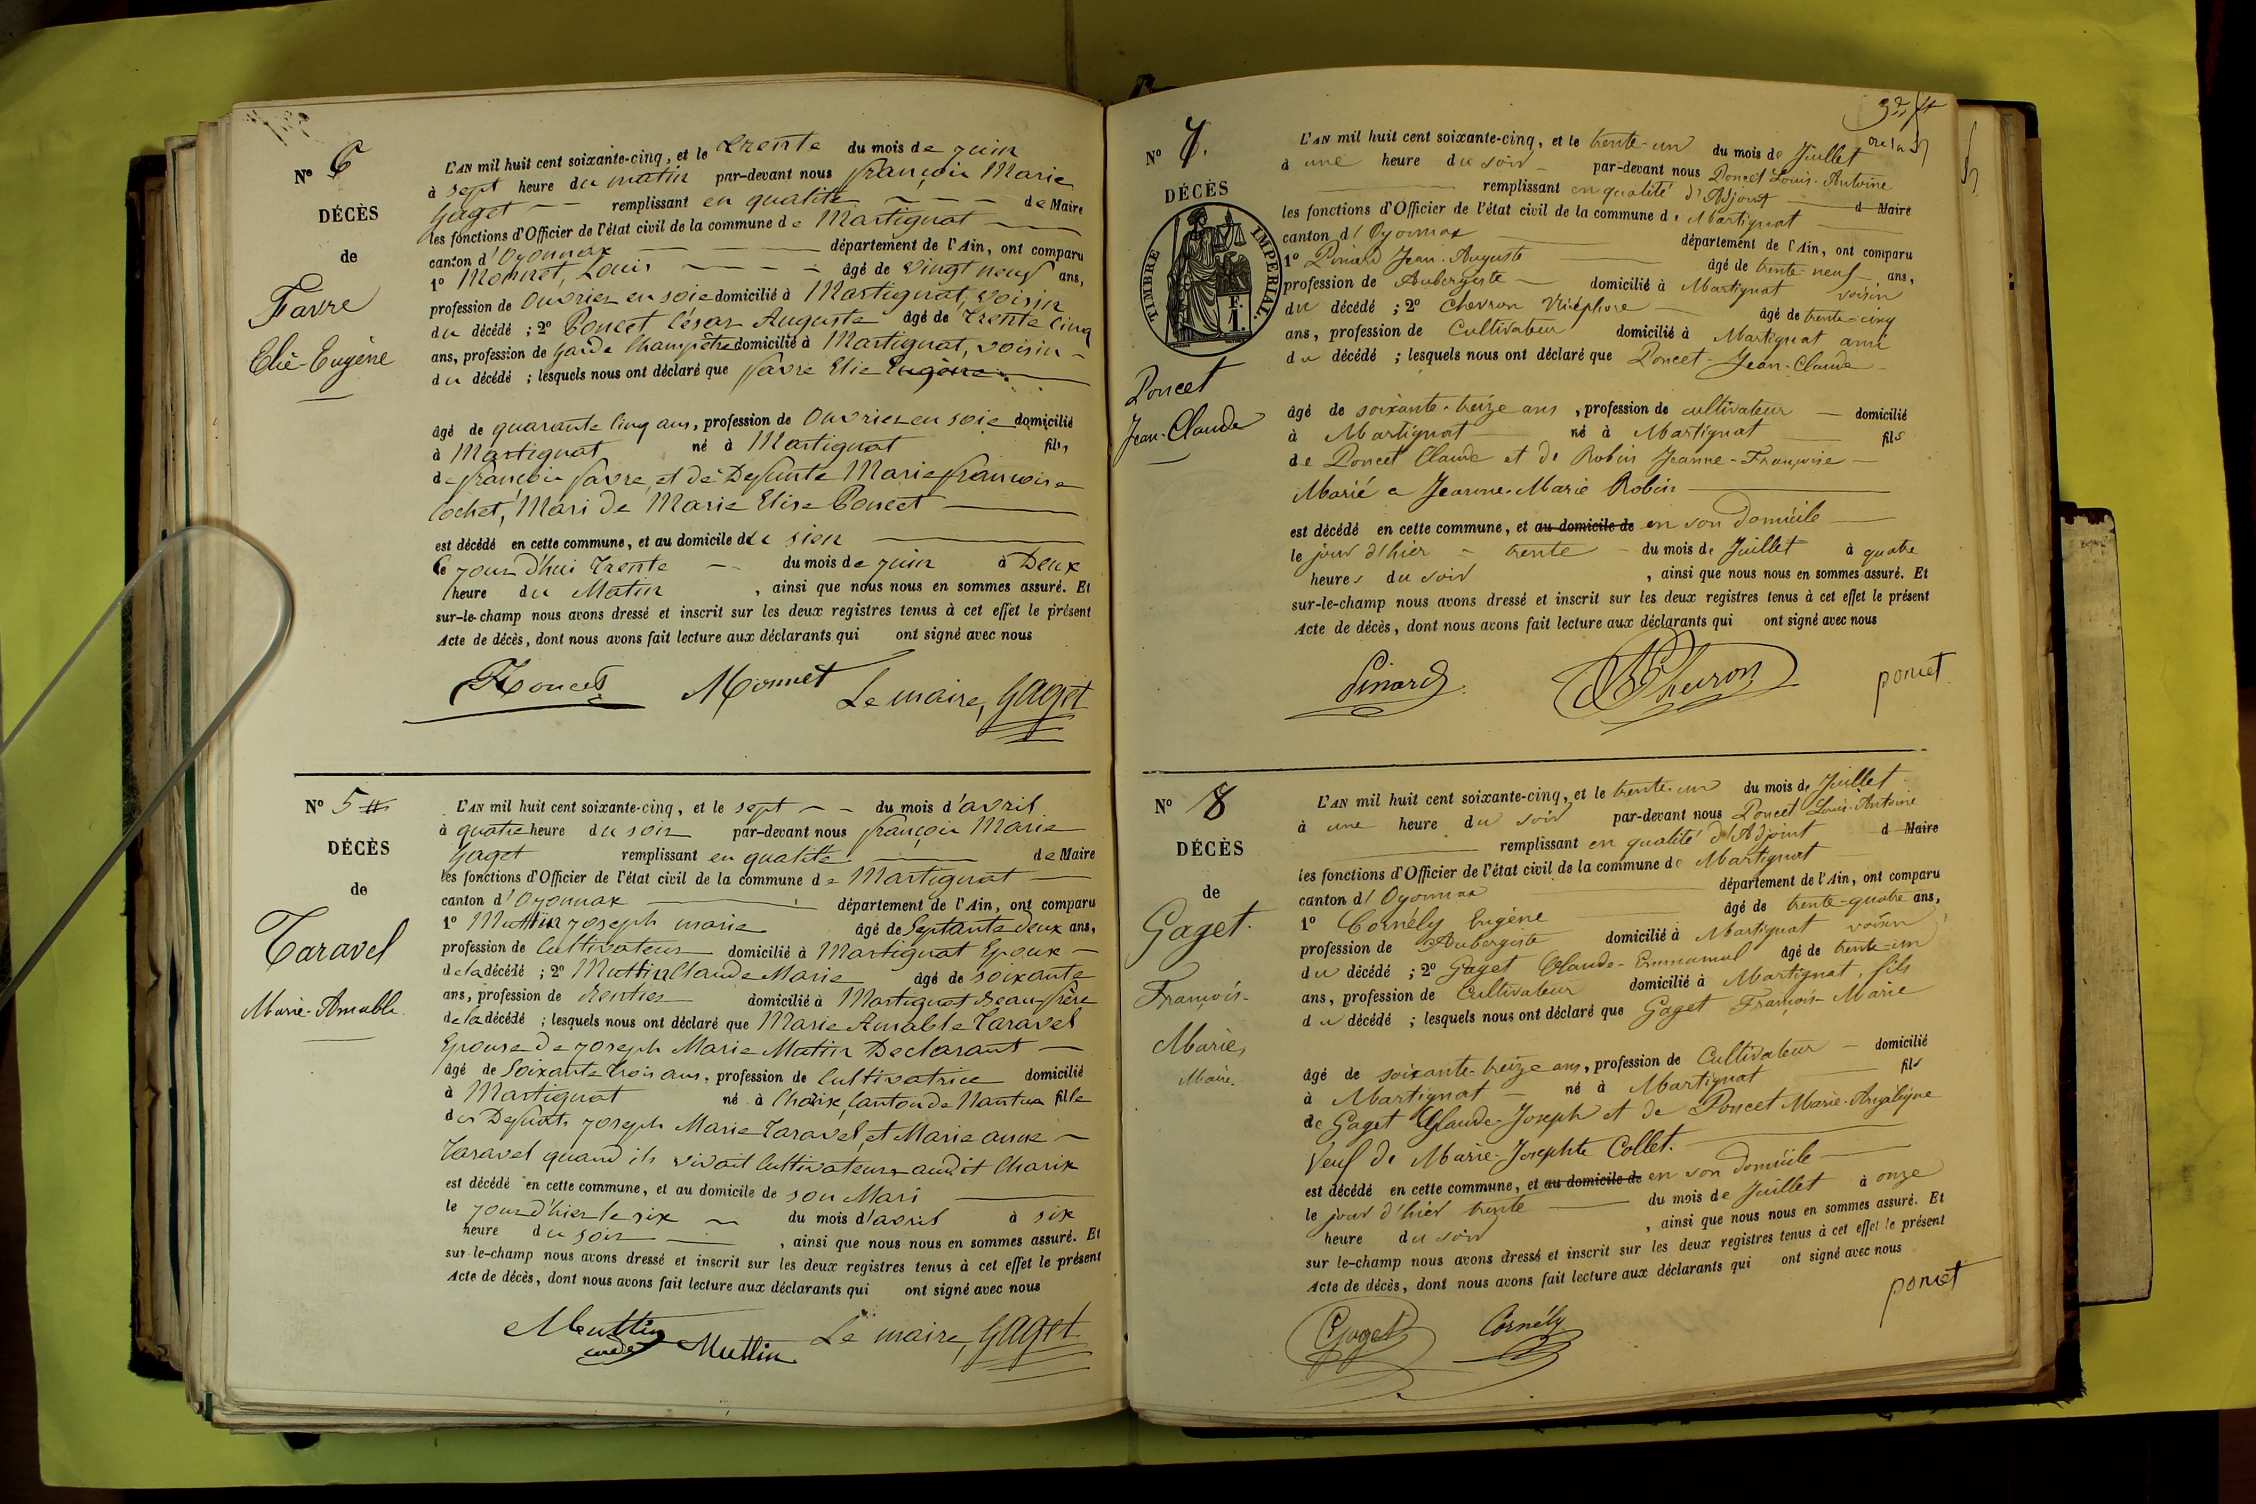 N° 6
DÉCÈS
de
Favre
Elie-Eugène
L'AN mil huit cent soixante-cinq, et le trente du mois de juin
à sept heure du matin par-devant nous françois Marie
Gaget remplissant en qualité de Maire
les fonctions d'Officier de l'état civil de la commune de Martignat
canton d'Oyonnax département de l'Ain, ont comparu
1° Monnet, Louis âgé de vingt neuf ans,
profession de Ouvrier en soie domicilié à Martignat, voisin
du décédé ; 2° Poncet César Auguste âgé de trente cinq
ans, profession de garde Champêtre domicilié à Martignat, voisin
du décédé ; lesquels nous ont déclaré que favre Elie Eugène
âgé de quarante cinq ans, profession de Ouvrier en soie domicilié
à Martignat né à Martignat fils,
de françois favre, et de Defunte Marie françoise
Cochet, Mari de Marie Elise Poncet
est décédé en cette commune, et au domicile de le sien
le jour d'hui trente du mois de juin à Deux
heure du Matin , ainsi que nous nous en sommes assuré. Et
sur-le-champ nous avons dressé et inscrit sur les deux registres tenus à cet effet le présent
Acte de décès, dont nous avons fait lecture aux déclarants qui ont signé avec nous
Poncet Monnet Le maire, Gaget
N° 5
DÉCÈS
de
Taravel
Marie-Amable
L'AN mil huit cent soixante-cinq, et le sept du mois d'avril
à quatre heure du soir par-devant nous françois Marie
Gaget remplissant en qualité de Maire
les fonctions d'Officier de l'état civil de la commune de Martignat
canton d'Oyonnax département de l'Ain, ont comparu
1° Muttin joseph marie âgé de Septante deux ans,
profession de Cultivateur domicilié à Martignat Epoux
de la décédé ; 2° Muttin Claude Marie âgé de soixante
ans, profession de Rentier domicilié à Martignat Beau frère
de la décédé ; lesquels nous ont déclaré que Marie Amable Taravel
Epouse de joseph Marie Mutin Declarant
âgé de Soixante trois ans, profession de Cultivatrice domicilié
à Martignat né à Charix, Canton de Nantua fille
des Defunts joseph Marie Taravel, et Marie anne
Taravel quand ils vivait Cultivateurs audit Charix
est décédé en cette commune, et au domicile de son Mari
le jour d'hier le six du mois d'avril à six
heure du soir , ainsi que nous nous en sommes assuré. Et
sur-le-champ nous avons dressé et inscrit sur les deux registres tenus à cet effet le présent
Acte de décès, dont nous avons fait lecture aux déclarants qui ont signé avec nous
Muttin Muttin Le maire, Gaget
N° 7.
DÉCÈS
TIMBRE IMPÉRIAL.
Poncet
Jean-Claude
L'AN mil huit cent soixante-cinq, et le trente-un du mois de Juillet
à une heure du soir par-devant nous Poncet Louis-Antoine
remplissant en qualité d'Adjoint d Maire
les fonctions d'Officier de l'état civil de la commune de Martignat
canton d'Oyonnax département de l'Ain, ont comparu
1° Pinard Jean-Auguste âgé de trente-neuf ans,
profession de Aubergiste domicilié à Martignat voisin
du décédé ; 2° Chevron Nicéphore âgé de trente-cinq
ans, profession de Cultivateur domicilié à Martignat ami
du décédé ; lesquels nous ont déclaré que Poncet-Jean-Claude
âgé de soixante-treize ans, profession de cultivateur domicilié
à Martignat né à Martignat fils
de Poncet Claude et de Robin Jeanne-Françoise
Marié a Jeanne-Marie Robin
est décédé en cette commune, et au domicile de en son Domicile
le jour d'hier trente du mois de Juillet à quatre
heures du soir , ainsi que nous nous en sommes assuré. Et
sur-le-champ nous avons dressé et inscrit sur les deux registres tenus à cet effet le présent
Acte de décès, dont nous avons fait lecture aux déclarants qui ont signé avec nous
Pinard Chevron poncet
N° 8
DÉCÈS
de
Gaget.
François-
Marie,
Maire.
L'AN mil huit cent soixante-cinq, et le trente-un du mois de Juillet
à une heure du soir par-devant nous Poncet Louis-Antoine
remplissant en qualité d'Adjoint d Maire
les fonctions d'Officier de l'état civil de la commune de Martignat
canton d'Oyonnax département de l'Ain, ont comparu
1° Cornély Eugène âgé de trente-quatre ans,
profession de Aubergiste domicilié à Martignat voisin
du décédé ; 2° Gaget Claude-Emmanuel âgé de trente-un
ans, profession de Cultivateur domicilié à Martignat, fils
du décédé ; lesquels nous ont déclaré que Gaget François-Marie
âgé de soixante-treize ans, profession de Cultivateur domicilié
à Martignat né à Martignat fils
de Gaget Claude-Joseph et de Poncet Marie-Angélique
Veuf de Marie-Josephte Collet.
est décédé en cette commune, et au domicile de en son Domicile
le jour d'hier trente du mois de Juillet à onze
heure du soir , ainsi que nous nous en sommes assuré. Et
sur le-champ nous avons dressé et inscrit sur les deux registres tenus à cet effet le présent
Acte de décès, dont nous avons fait lecture aux déclarants qui ont signé avec nous
Gaget Cornély poncet